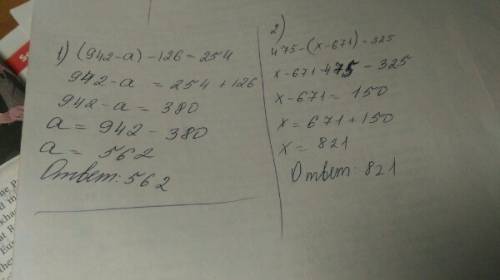 1) (942-a)-126=254
942-a = 254+126
942-a = 380
a = 942 - 380
a = 562
Ответ: 562
2)
475-(x-671)=325
x-671 475 - 325
x-671 = 150
x = 671+150
x = 821
Ответ: 821